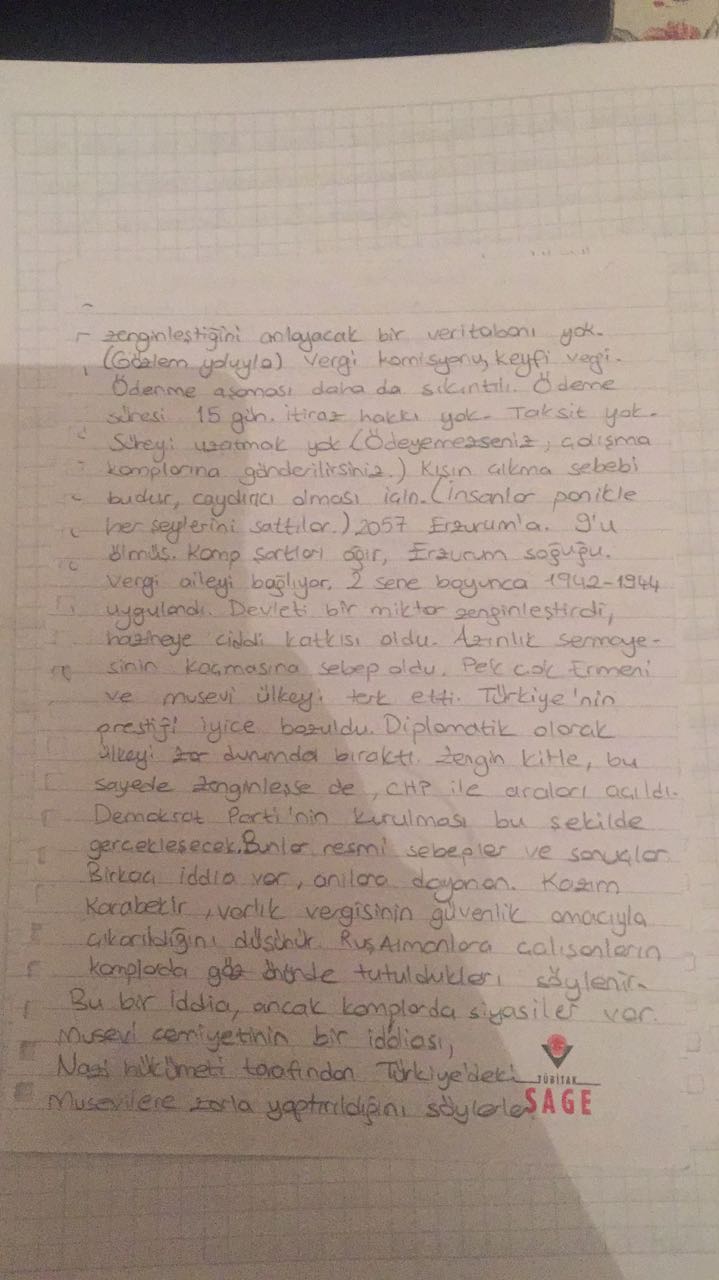 zenginleştiğini anlayacak bir veritabanı yok.
(Gözlem yoluyla) Vergi komisyonu, keyfi vergi.
Ödenme aşaması daha da sıkıntılı. Ödeme
süresi 15 gün. itiraz hakkı yok. Taksit yok.
Süreyi uzatmak yok (Ödeyemezseniz, çalışma
kamplarına gönderilirsiniz.) Kışın çıkma sebebi
budur, caydırıcı olması için. (İnsanlar panikle
her şeylerini sattılar.) 2057 Erzurum'a. 9'u
ölmüş. Kamp şartları ağır, Erzurum soğuğu.
Vergi aileyi bağlıyor. 2 sene boyunca 1942-1944
uygulandı. Devleti bir miktar zenginleştirdi,
hazineye ciddi katkısı oldu. Azınlık sermaye-
sinin kaçmasına sebep oldu. Pek çok Ermeni
ve musevi ülkeyi terk etti. Türkiye'nin
prestiği iyice bozuldu. Diplomatik olarak
ülkeyi zor durumda bıraktı. Zengin kitle, bu
sayede zenginleşse de, CHP ile araları açıldı.
Demokrat Parti'nin kurulması bu şekilde
gerçekleşecek. Bunlar resmi sebepler ve sonuçlar
Birkaç iddia var, anılara dayanan. Kazım
Karabekir, varlık vergisinin güvenlik amacıyla
çıkarıldığını düşünür. Rus, Almanlara çalışanların
kamplarda göz önünde tutuldukları söylenir.
Bu bir iddia, ancak kamplarda siyasiler var.
Musevi cemiyetinin bir iddiası,
Nazi hükümeti tarafından Türkiye'deki
Musevilere zorla yaptırıldığını söylerler.
TÜBİTAK
SAGE